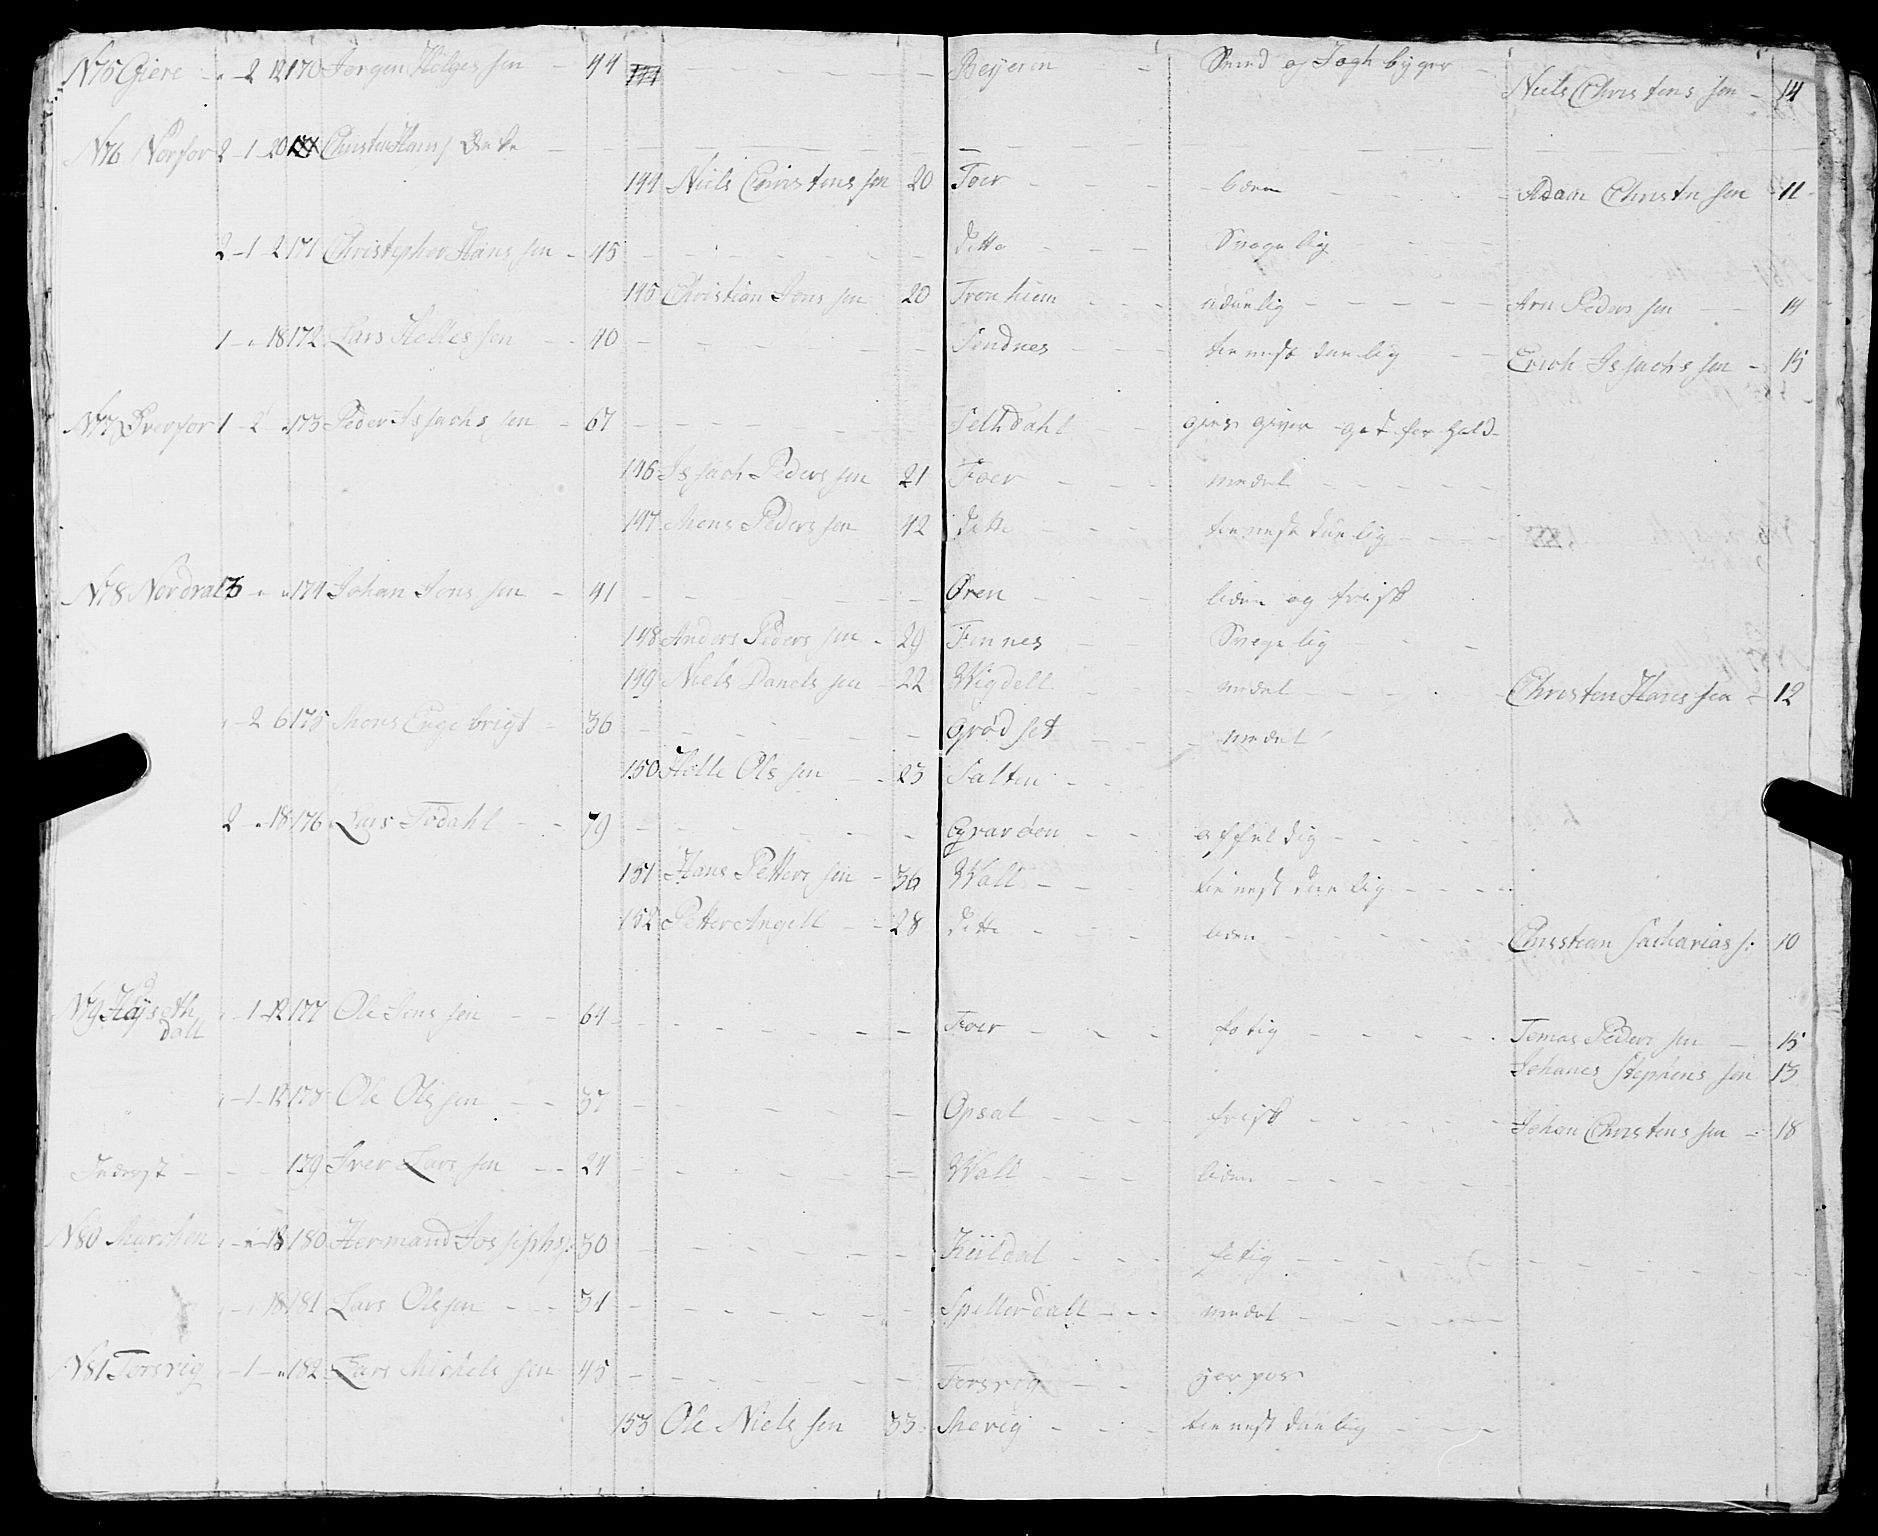 N75 Giere - " - 2 12 170 Jørgen Helges sen - 44 - - - Beyeren - Smed og Jagh byger - Niels Christens sen - 14
N76 Norfor 2 - 1 - 20 Christen Hans - - -
144 Niels Christens sen 20 Foer - - - - - - Adam Christen sen - 11
2 - 1 - 2 171 Christopher Hans sen - 45 - - - ditto - - - Svagelig - - -
145 Christian Jens sen 20 Tronhiem - - - uduelig - - - Arn Peders sen - - 14
1 - " 18 172 Lars Helles sen - - 40 - - - Sendnes - - - tienest duelig - - - Erich Issachs sen - 15
N77 Øverfor 1 - 2 " 173 Peder Issachs sen - 67 - - - Selhdahl - - giest giver
146 Issach Peders sen 21 Foer - - - medel - - -
147 Mons Peders sen 42 ditto - - - tienest duelig - - -
N78 Nordral 3 " " 174 Johan Jens sen - 41 - - - Øren - - - liden og frisk
148 Anders Peders sen - 29 Finnes - - Svagelig - -
149 Niels Danels sen - 22 Wigdell - - - medel - - - Christen Hans sen - 12
" - 2 6 175 Mons Engebrigt - 36 - - - Grødset - - - medel
150 Helle Ols sen - - 23 Salten - -
2 - " 18 176 Lars Todahl - - 79 - - - Grarøen - - affeldig - - -
151 Hans Petters sen - 36 Wall - - - tienest duelig - - -
152 Petter Angell - - 28 ditto - - - liden - - - Christian Sacharias s: 10
N79 Høyseth " - 1 - 12 177 Ole Jens sen - - 64 - - - Foer - - - fatig - - - Tomas Peders sen - 15
dall
Johanes Stephens sen 13
" - 1 - 12 178 Ole Ols sen - - 37 - - - Opsal - - - frisk - - - Johan Christens sen - 18
Inderst - - - 179 Iver Lars sen - - 24 - - - Wall - - - liden - - -
N80 " - " - 18 180 Hermand Jossephs: 30 - - - - - - fatig - - -
" - " 18 181 Lars Ols sen - - - 31 - - - Spellerdall - - - medel - - -
N81 Forsvig " - 1 - " 182 Lars Michels sen 45 - - - Forsvig - -
153 Ole Niels sen 33 Shevig - - - tienest duelig - - -